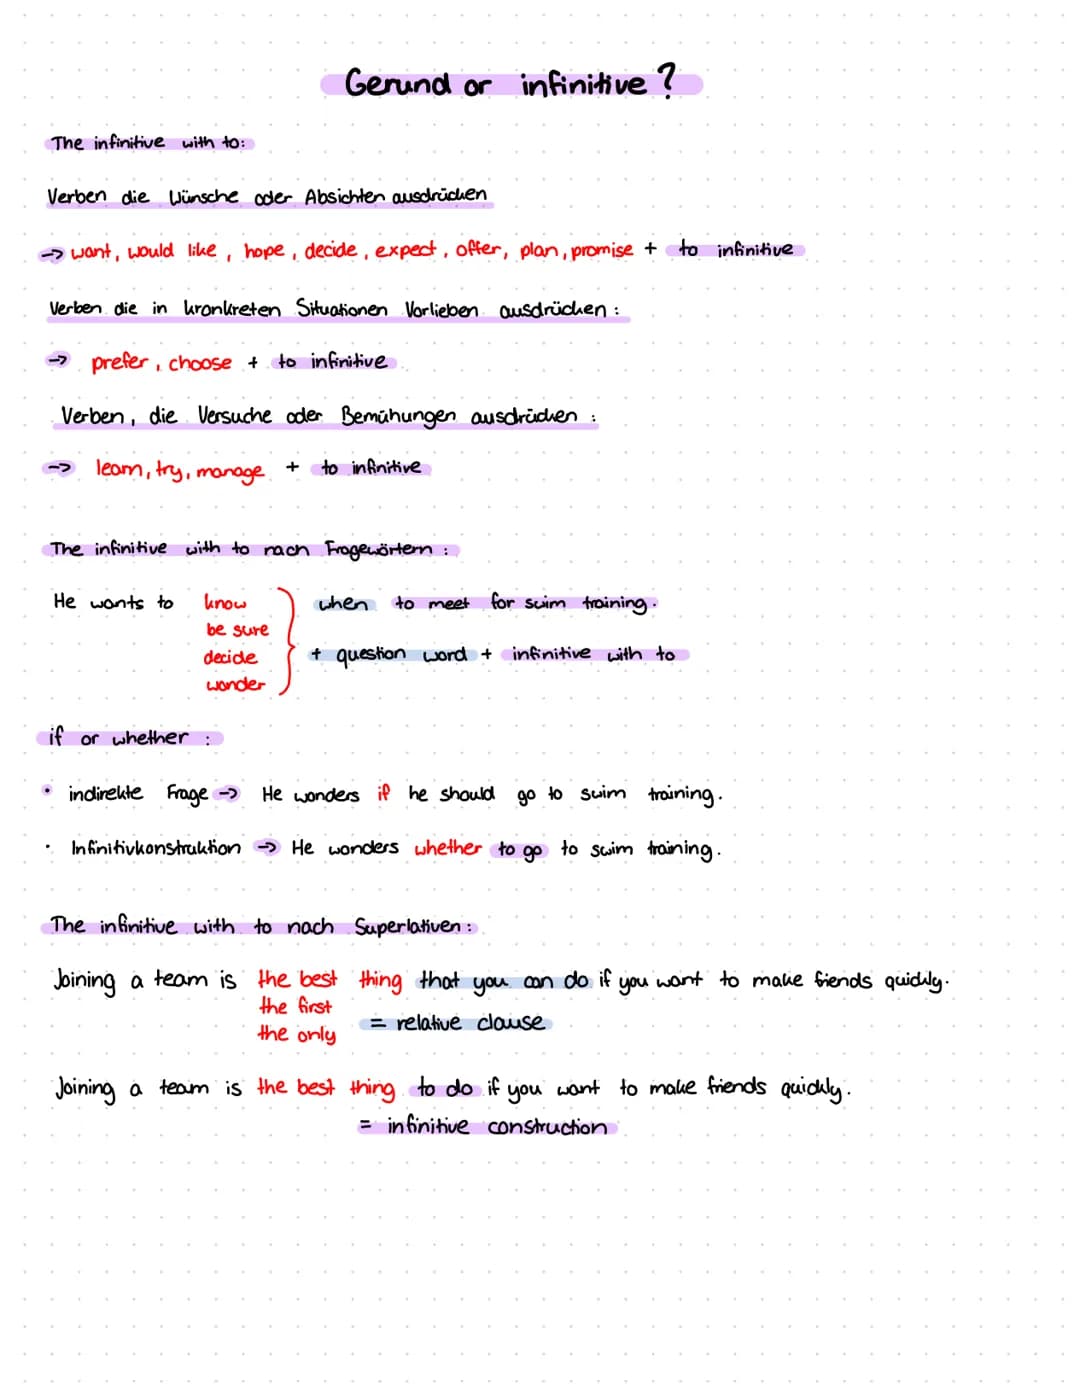 Gerund or infinitive ?
The infinitive with to:
Verben die Wünsche oder Absichten ausdrücken
-> want, would like, hope, decide, expect, offer, plan, promise + to infinitive
Verben die in kronkreten Situationen Vorlieben ausdrücken :
-> prefer, choose + to infinitive
Verben, die Versuche oder Bemühungen ausdrücken :
-> learn, try, manage + to infinitive
The infinitive with to nach Fragewörtern :
He wants to know when to meet for swim training.
be sure
decide + question word + infinitive with to
wonder
if or whether :
• indirekte Frage -> He wonders if he should go to swim training.
• Infinitivkonstruktion -> He wonders whether to go to swim training.
The infinitive with to nach Superlativen :
Joining a team is the best thing that you can do if you want to make friends quickly.
the first
= relative clause
the only
Joining a team is the best thing to do if you want to make friends quickly.
= infinitive construction